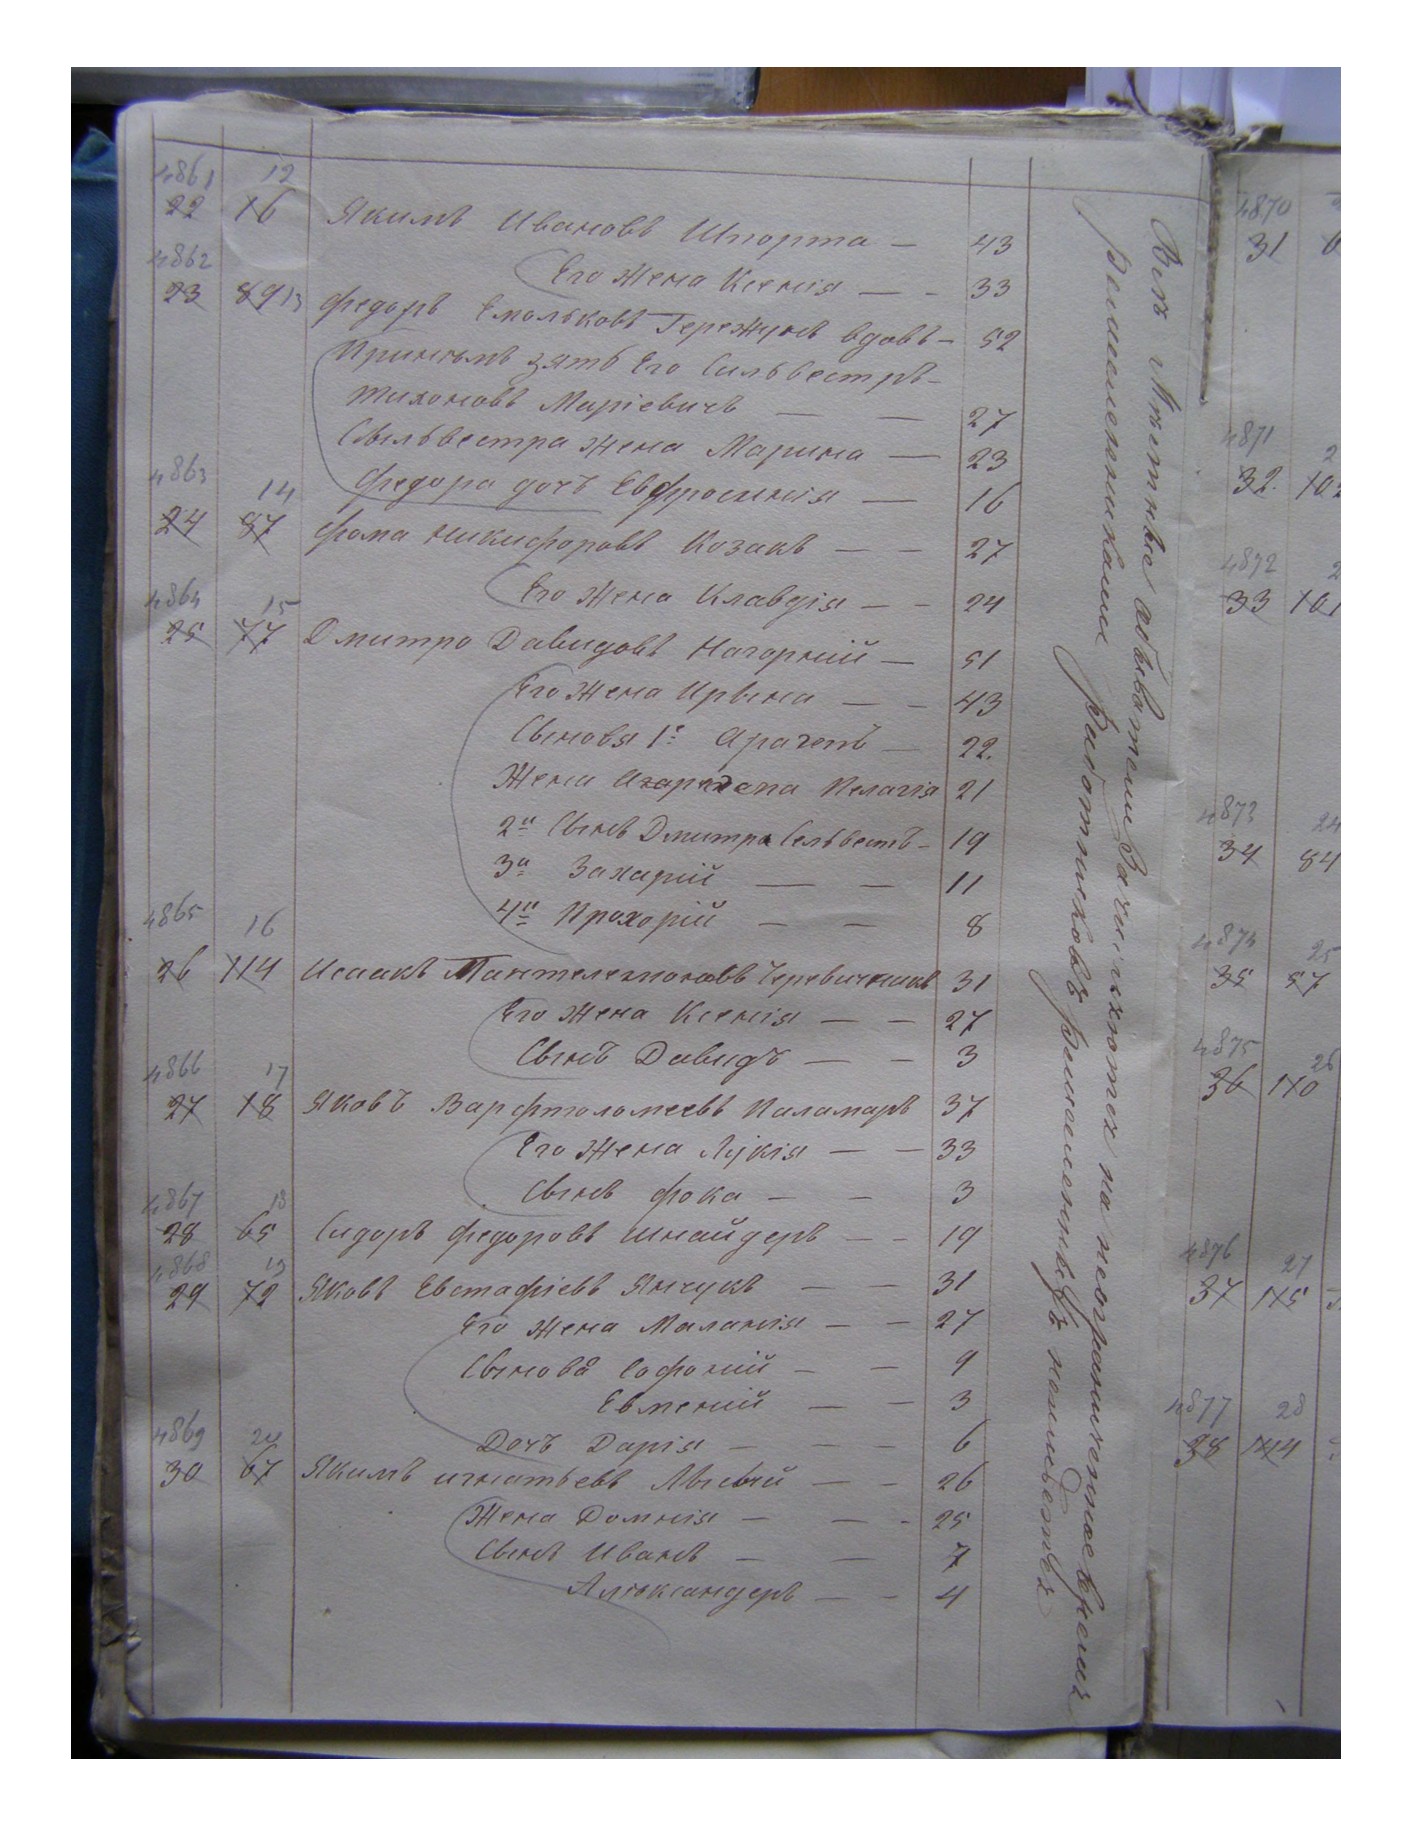 4861 12
22 16 Якимъ Ивановъ Шпорта — 43
4862
Его Жена Ксенія — - 33
23 89 13 Федоръ Емольковъ Гережунъ вдовъ - 52
Принятъ зять Его Сильвестръ-
Тихоновъ Маріевичъ — — 27
Сыльвестра Жена Марина — 23
4863
Федора дочъ Евфросинія — 16
14
24 87 Фома Никифоровъ Козакъ — - 27
4864
Его Жена Клавдія — - 24
15
25 77 Дмитро Давидовъ Нагорний — 51
Его Жена Ирына — - 43
Сыновя 1й Арагепъ — 22.
Жена Пелагія 21
2й Сынъ Дмитра Селвестъ - 19
3й Захарій — — 11
4865 16
4й Прохорій — — 8
26 114 Исаакъ Пантелеимоновъ Черевичникъ 31
Его Жена Ксенія — - 27
Сынъ Давидъ — - 3
4866 17
27 18 Яковъ Варфтоломеевъ Паламаръ 37
Его Жена Лукія — — 33
Сынъ Фока — — 3
4867 18
28 65 Сидоръ Федоровъ Шнайдеръ — - 19
4868 19
29 72 Яковъ Евстафіевъ Янчукъ — — 31
Его Жена Маланія — — 27
Сыновя Софоній — — 9
Евмений — — 3
4869 20
Дочъ Дарія — — - 6
30 67 Якимъ Игнатьевъ — - 26
Жена Домнія — — - 25
Сынъ Иванъ — — 7
Александеръ — - 4
Всѣ обыватели Зачисляются на неограниченное время
ремесленниками работниковъ
4870
31
4871 2
32. 10
4872 2
33 101
4873 24
34 84
4874 25
35 57
4875 26
36 110
4876 27
37 115
4877 28
38 144